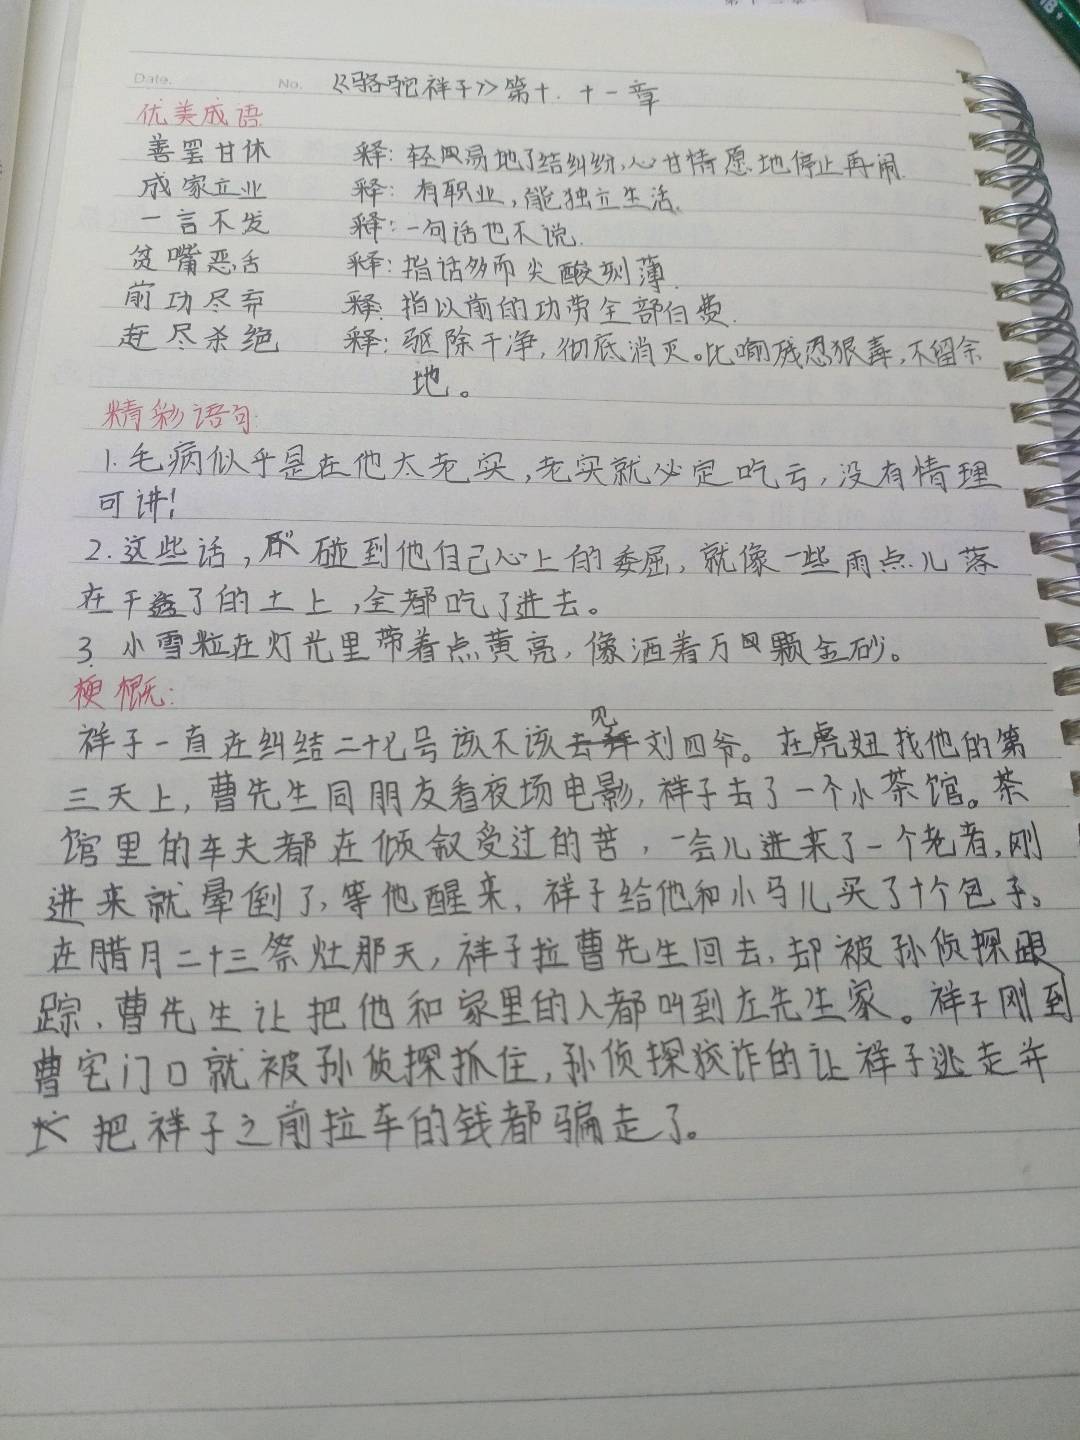 Date.
No.
《骆驼祥子》第十.十一章
优美成语
善罢甘休 释:轻易地了结纠纷,心甘情愿地停止再闹.
成家立业 释:有职业,能独立生活.
一言不发 释:一句话也不说.
贫嘴恶舌 释:指话多而尖酸刻薄.
前功尽弃 释:指以前的功劳全部白费.
赶尽杀绝 释:驱除干净,彻底消灭。比喻残忍狠毒,不留余
地。
精彩语句:
1.毛病似乎是在他太老实,老实就必定吃亏,没有情理
可讲!
2.这些话,碰到他自己心上的委屈,就像一些雨点儿落
在干透了的土上,全都吃了进去。
3.小雪粒在灯光里带着点黄亮,像洒着万颗金砂。
梗概:
祥子一直在纠结二十七号该不该去见刘四爷。在虎妞找他的第
三天上,曹先生同朋友看夜场电影,祥子去了一个小茶馆。茶
馆里的车夫都在倾叙受过的苦,一会儿进来了一个老者,刚
进来就晕倒了,等他醒来,祥子给他和小马儿买了十个包子。
在腊月二十三祭灶那天,祥子拉曹先生回去,却被孙侦探跟
踪,曹先生让把他和家里的人都叫到左先生家。祥子刚到
曹宅门口就被孙侦探抓住,孙侦探狡诈的让祥子逃走并
把祥子之前拉车的钱都骗走了。